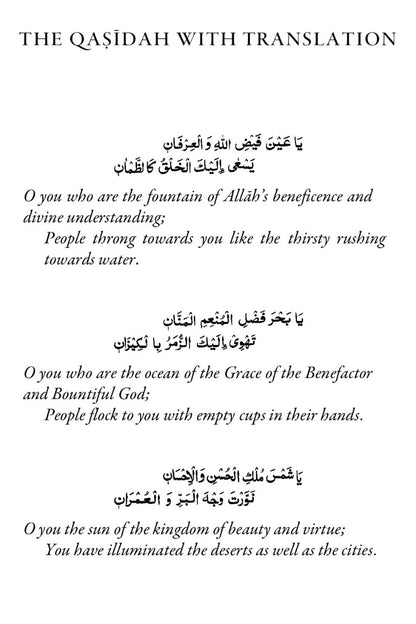 THE QAṢĪDAH WITH TRANSLATION
يَا عَيْنَ فَيْضِ اللهِ وَالْعِرْفَانٖ
يَسْعٰى اِلَيْكَ الْخَلْقُ كَالظَّمْاٰنٖ
O you who are the fountain of Allāh’s beneficence and
divine understanding;
People throng towards you like the thirsty rushing
towards water.
يَا بَحْرَ فَضْلِ الْمُنْعِمِ الْمَنَّانٖ
تَهْوِىْ اِلَيْكَ الزُّمَرُ بِالْكِيْزَانٖ
O you who are the ocean of the Grace of the Benefactor
and Bountiful God;
People flock to you with empty cups in their hands.
يَا شَمْسَ مُلْكِ الْحُسْنِ وَالْاِحْسَانٖ
نَوَّرْتَ وَجْهَ الْبَرِّ وَ الْعُمْرَانٖ
O you the sun of the kingdom of beauty and virtue;
You have illuminated the deserts as well as the cities.